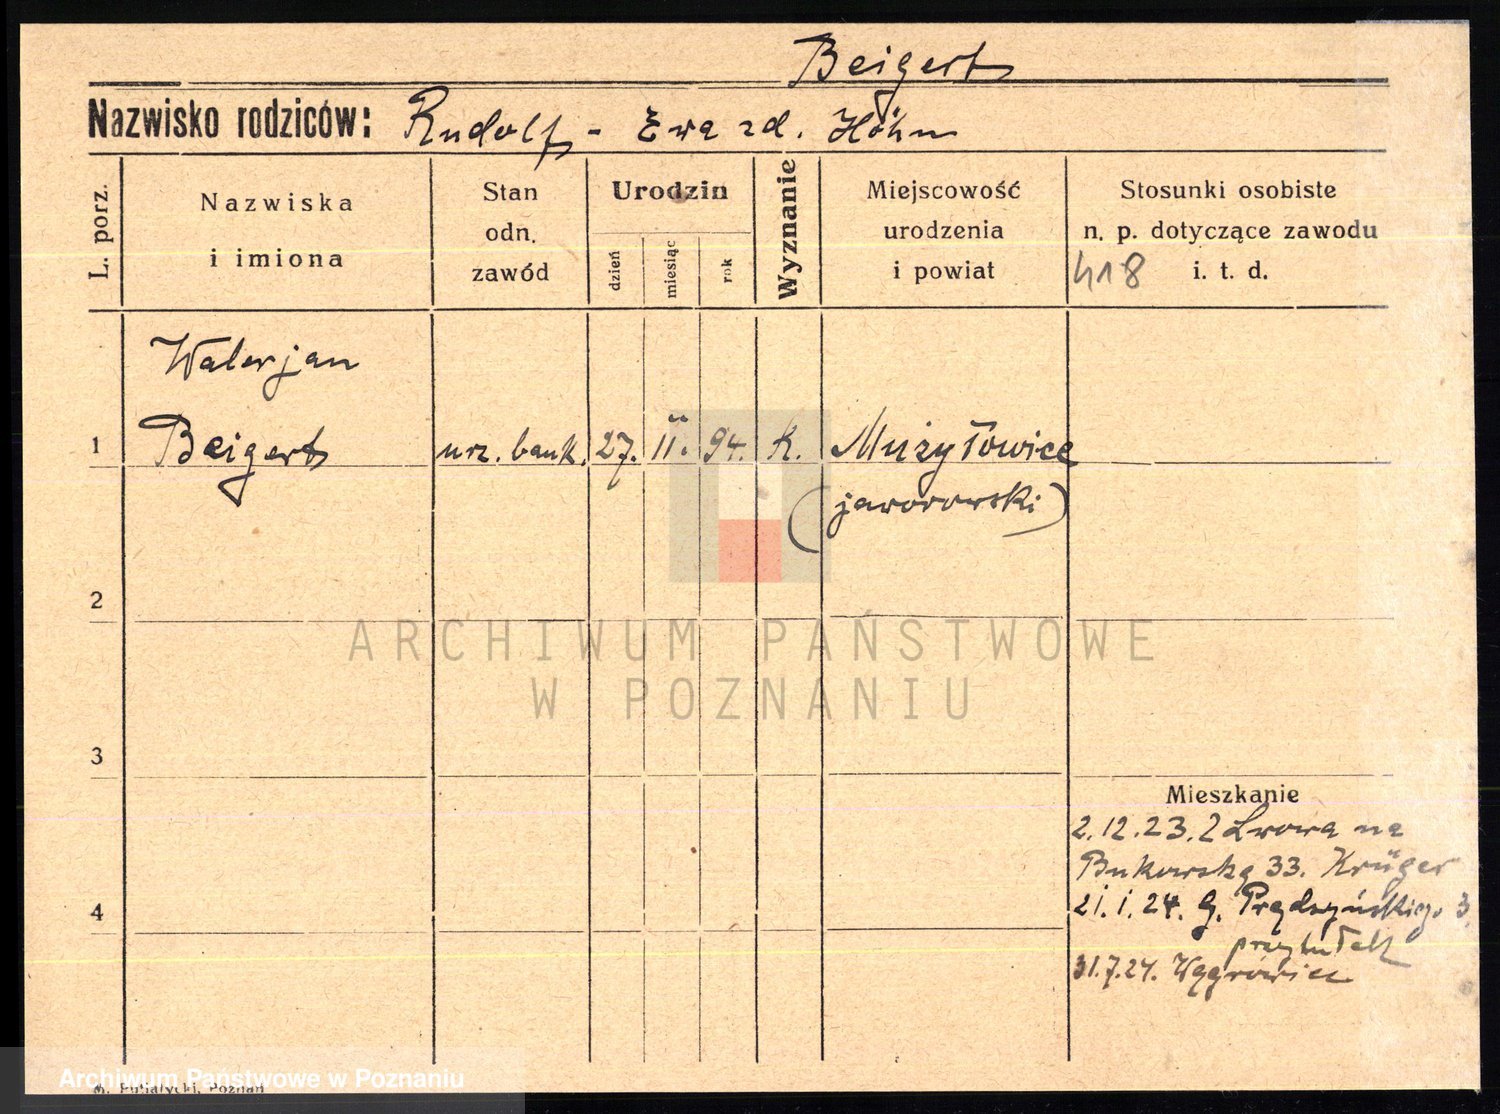 Beigert
Nazwisko rodziców: Rudolf - Ewa zd. Höhn
L. porz.
Nazwiska
i imiona
Stan
odn.
zawód
Urodzin
dzień
miesiąc
rok
Wyznanie
Miejscowość
urodzenia
i powiat
Stosunki osobiste
n. p. dotyczące zawodu
418 i. t. d.
Walerjan
1 Beigert urz. bank. 27. II. 94. k. Mużyłowice
(jaworowski)
2
3
4
Mieszkanie
2.12.23. z Lwowa na
Bukowską 33. Krüger
21.1.24. G. Prądzyńskiego 3.
31.7.24. Wągrówiec
ARCHIWUM PAŃSTWOWE
W POZNANIU
Archiwum Państwowe w Poznaniu